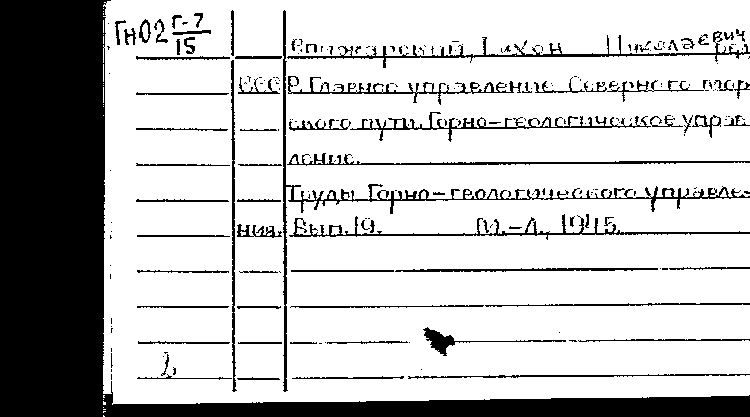 ГнО2 Г-7/15
Спижарский, Тихон Николаевич ред.
СССР. Главное управление Северного мор-
ского пути. Горно-геологическое управ-
ление.
Труды Горно-геологического управле-
ния. Вып. 19. М.-Л., 1945.
2